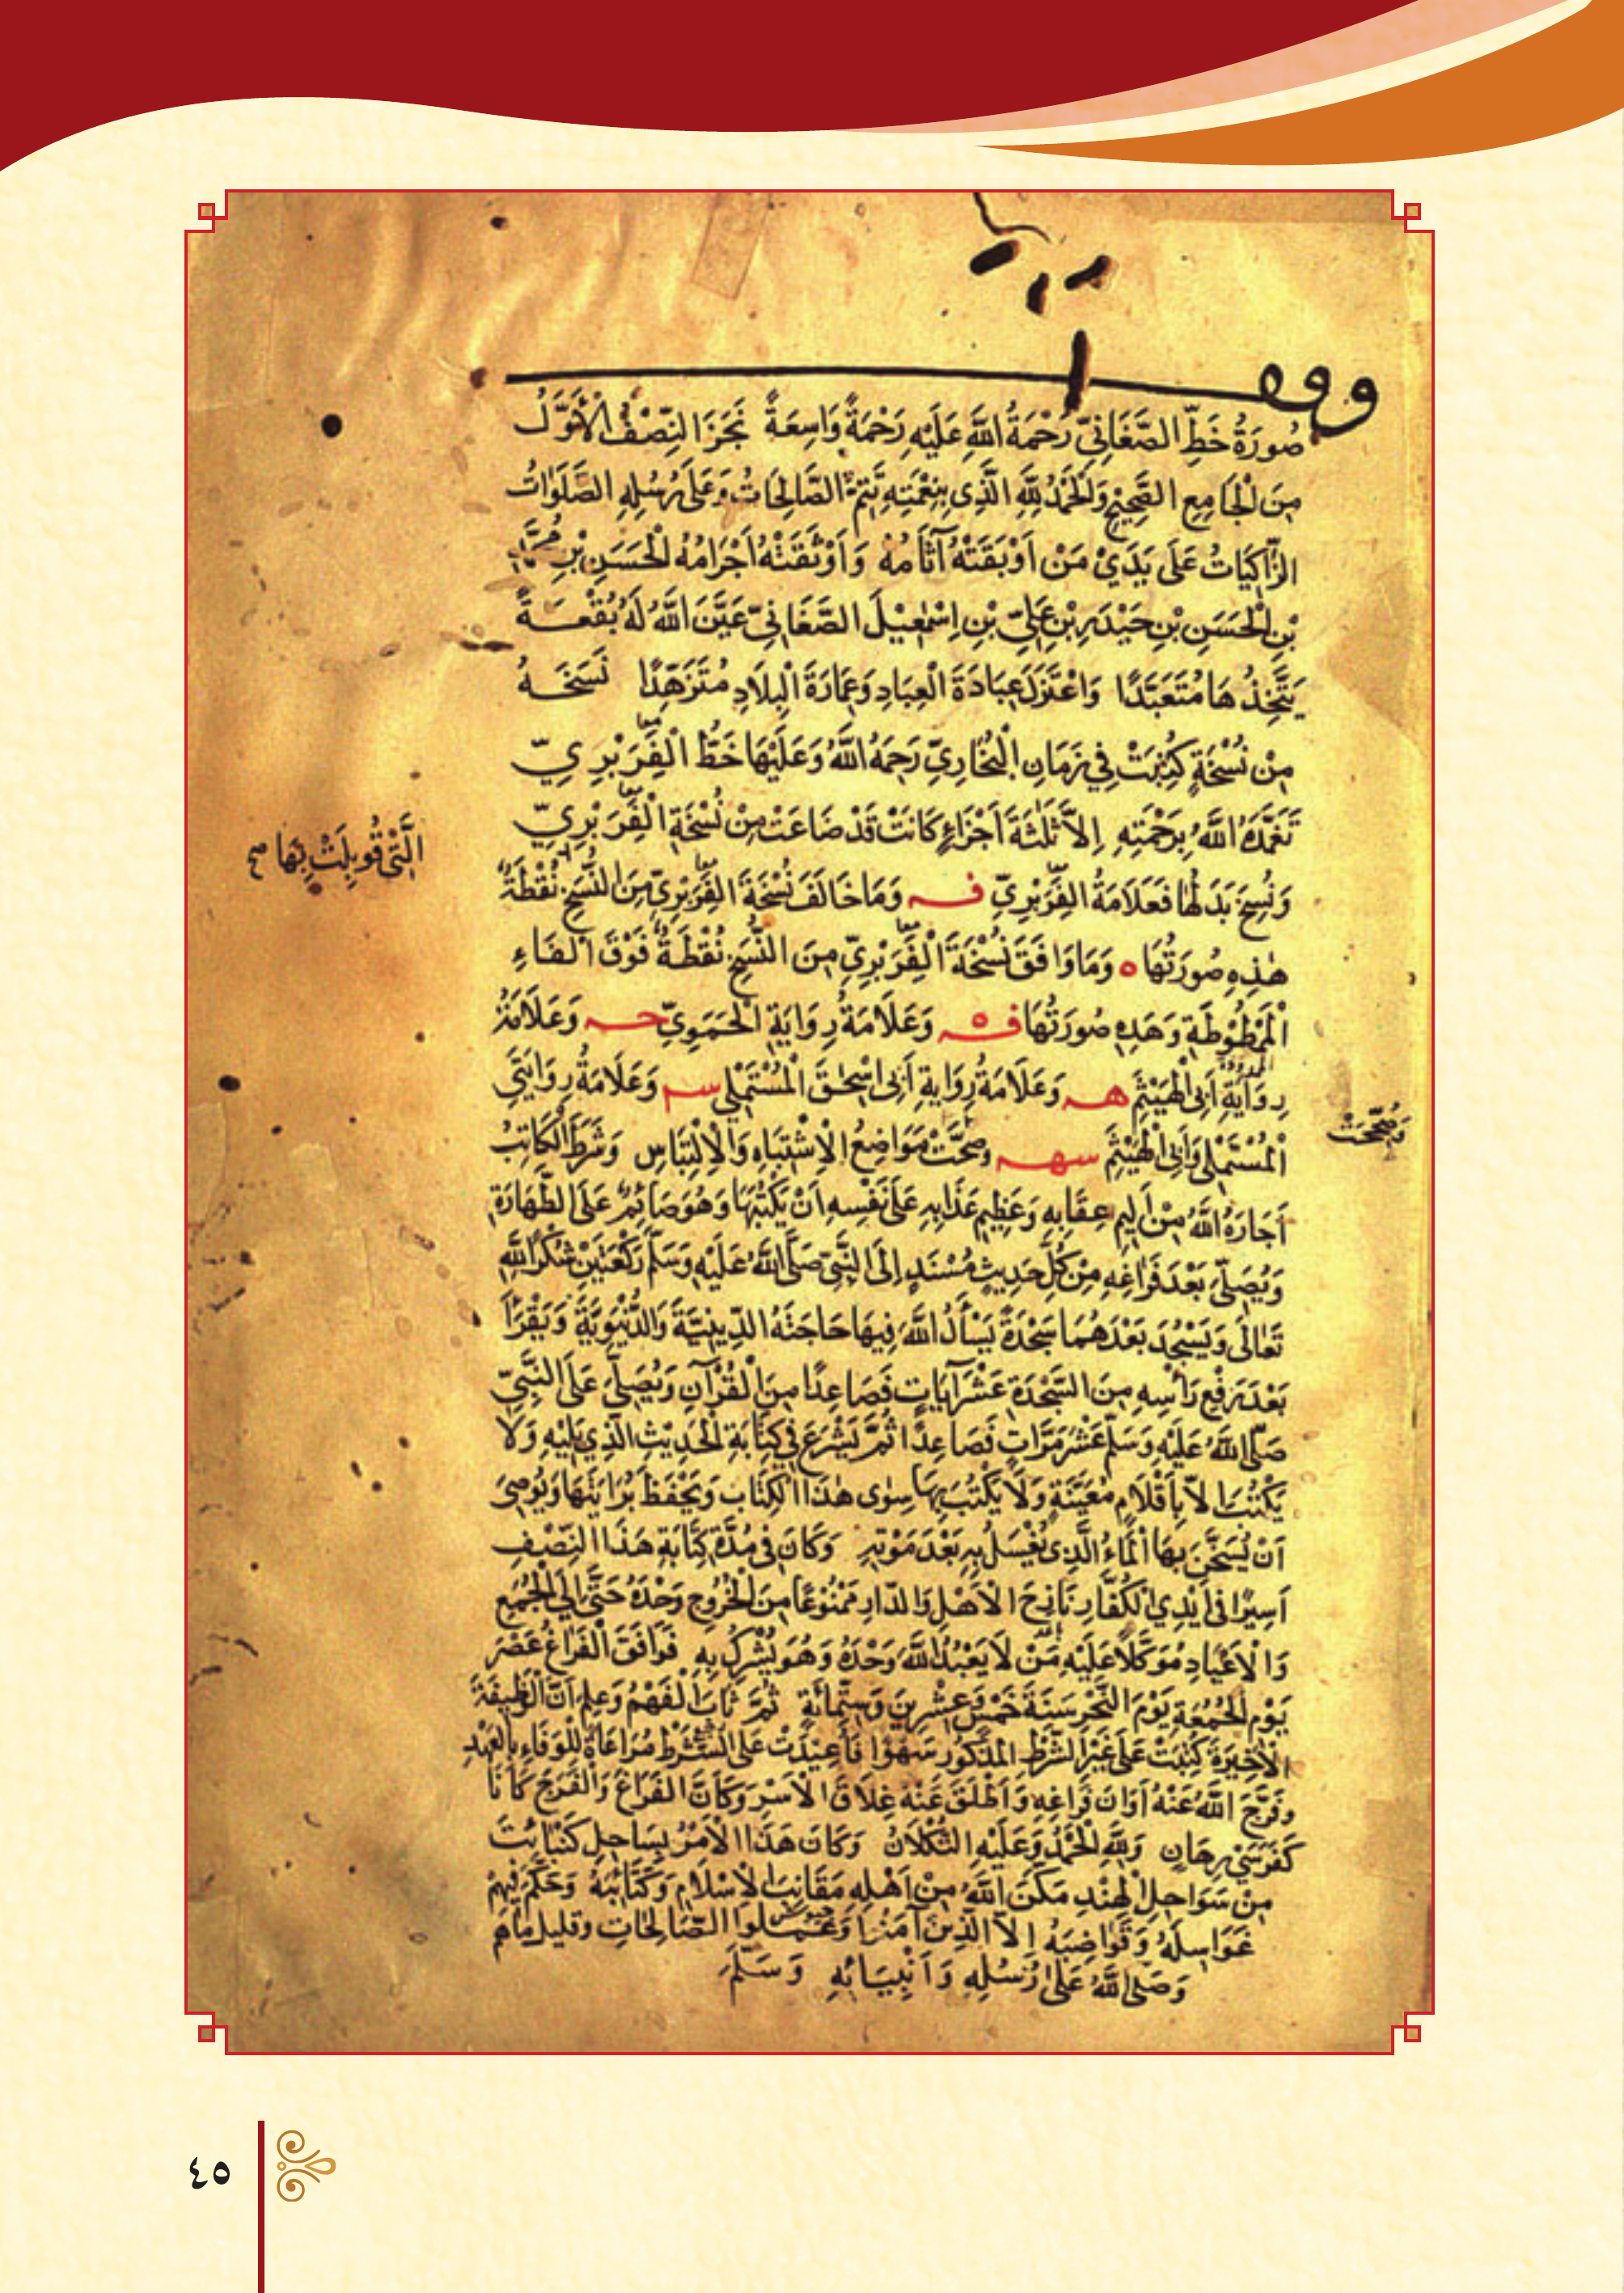 وقف
صُورَةُ خَطِّ الصَّغَانِيِّ رَحْمَةُ اللَّهِ عَلَيْهِ رَحْمَةً وَاسِعَةً نَجَزَ النِّصْفُ الْأَوَّلُ
مِنَ الْجَامِعِ الصَّحِيحِ وَالْحَمْدُ لِلَّهِ الَّذِي بِنِعْمَتِهِ تَتِمُّ الصَّالِحَاتُ وَعَلَى رُسُلِهِ الصَّلَوَاتُ
الزَّاكِيَاتُ عَلَى يَدَيْ مَنْ أَوْبَقَتْهُ آثَامُهُ وَأَوْثَقَتْهُ أَجْرَامُهُ الْحَسَنِ بْنِ مُحَمَّدِ
بْنِ الْحَسَنِ بْنِ حَيْدَرِ بْنِ عَلِيِّ بْنِ إِسْمٰعِيْلَ الصَّغَانِيِّ عَيَّنَ اللَّهُ لَهُ بُقْعَةً
يَتَّخِذُهَا مُتَعَبَّدًا وَاعْتَزَلَ عِبَادَةَ الْعِبَادِ وَعِمَارَةَ الْبِلَادِ مُتَزَهِّدًا نَسَخَهُ
مِنْ نُسْخَةٍ كُتِبَتْ فِي زَمَانِ الْبُخَارِيِّ رَحِمَهُ اللَّهُ وَعَلَيْهَا خَطُّ الْفِرَبْرِيِّ
تَغَمَّدَهُ اللَّهُ بِرَحْمَتِهِ إِلَّا ثَلٰثَةَ أَجْزَاءٍ كَانَتْ قَدْ ضَاعَتْ مِنْ نُسْخَةِ الْفِرَبْرِيِّ
الَّتِي قُوبِلَتْ بِهَا صح
وَنُسِخَ بَدَلُهَا فَعَلَامَةُ الفِرَبْرِيِّ فـه وَمَا خَالَفَ نُسْخَةَ الفِرَبْرِيِّ مِنَ النُّسَخِ نُقْطَةٌ
هٰذِهِ صُورَتُهَا ه وَمَا وَافَقَ نُسْخَةَ الْفِرَبْرِيِّ مِنَ النُّسَخِ نُقْطَةٌ فَوْقَ الفَاءِ
الْمَمْطُوطَةِ وَهَذِهِ صُورَتُهَا فـه وَعَلَامَةُ رِوَايَةِ الْحَمَوِيِّ حـه وَعَلَامَةُ
رِوَايَةِ أَبِي الْهَيْثَمِ هـه وَعَلَامَةُ رِوَايَةِ أَبِي إِسْحٰقَ الْمُسْتَمْلِي سـه وَعَلَامَةُ رِوَايَتَيِ
الْمُسْتَمْلِي وَأَبِي الْهَيْثَمِ سهـه وَصُحِّحَتْ مَوَاضِعُ الِاشْتِبَاهِ وَالِالْتِبَاسِ وَشَرَطَ الْكَاتِبُ
وَصُحِّحَتْ
أَجَارَهُ اللَّهُ مِنْ أَلِيمِ عِقَابِهِ وَعَظِيمِ عَذَابِهِ عَلَى نَفْسِهِ أَنْ يَكْتُبَهَا وَهُوَ صَائِمٌ عَلَى الطَّهَارَةِ
وَيُصَلِّيَ بَعْدَ فَرَاغِهِ مِنْ كُلِّ حَدِيثٍ مُسْنَدٍ إِلَى النَّبِيِّ صَلَّى اللَّهُ عَلَيْهِ وَسَلَّمَ رَكْعَتَيْنِ شُكْرًا لِلَّهِ
تَعَالَى وَيَسْجُدَ بَعْدَهُمَا سَجْدَةً يَسْأَلُ اللَّهَ فِيهَا حَاجَتَهُ الدِّينِيَّةَ وَالدُّنْيَوِيَّةَ وَيَقْرَأَ
بَعْدَ رَفْعِ رَأْسِهِ مِنَ السَّجْدَةِ عَشْرَ آيَاتٍ فَصَاعِدًا مِنَ الْقُرْآنِ وَيُصَلِّيَ عَلَى النَّبِيِّ
صَلَّى اللَّهُ عَلَيْهِ وَسَلَّمَ عَشْرَ مَرَّاتٍ فَصَاعِدًا ثُمَّ يَشْرَعَ فِي كِتَابَةِ الْحَدِيثِ الَّذِي يَلِيهِ وَلَا
يَكْتُبَ إِلَّا بِأَقْلَامٍ مُعَيَّنَةٍ وَلَا يَكْتُبَ بِهَا سِوَى هٰذَا الْكِتَابِ وَيَحْفَظَ بُرَايَتَهَا وَيُوصِيَ
أَنْ يُسَخَّنَ بِهَا الْمَاءُ الَّذِي يُغْسَلُ بِهِ بَعْدَ مَوْتِهِ وَكَانَ فِي مُدَّةِ كِتَابَةِ هَذَا النِّصْفِ
أَسِيرًا فِي أَيْدِي الْكُفَّارِ نَازِحَ الْأَهْلِ وَالدَّارِ مَمْنُوعًا مِنَ الْخُرُوجِ وَحْدَهُ حَتَّى إِلَى الْجُمَعِ
وَالْأَعْيَادِ مُوَكَّلًا عَلَيْهِ مَنْ لَا يَعْبُدُ اللَّهَ وَحْدَهُ وَهُوَ يُشْرِكُ بِهِ فَوَافَقَ الْفَرَاغُ عَصْرَ
يَوْمِ الْجُمُعَةِ يَوْمَ النَّحْرِ سَنَةَ خَمْسٍ وَعِشْرِينَ وَسِتِّمِائَةٍ ثُمَّ ثَابَ الْفَهْمُ وَعَلِمَ أَنَّ الْوَظِيفَةَ
الْأَخِيرَةَ كُتِبَتْ عَلَى غَيْرِ الشَّرْطِ الْمَذْكُورِ سَهْوًا فَأُعِيدَتْ عَلَى الشَّرْطِ مُرَاعَاةً لِلْوَفَاءِ بِالْعَهْدِ
وَفَرَّجَ اللَّهُ عَنْهُ أَوَانَ فَرَاغِهِ وَأَطْلَقَ عَنْهُ غِلَاقَ الْأَسْرِ وَكَأَنَّ الْفَرَاغَ وَالْفَرَجَ كَانَا
كَفَرَسَيْ رِهَانٍ وَلِلَّهِ الْحَمْدُ وَعَلَيْهِ التُّكْلَانُ وَكَانَ هَذَا الْأَمْرُ بِسَاحِلِ كَنْبَائِتَ
مِنْ سَوَاحِلِ الْهِنْدِ مَكَّنَ اللَّهُ مِنْ أَهْلِهِ مَقَانِبَ الْإِسْلَامِ وَكَتَائِبَهُ وَحَكَّمَ فِيهِمْ
عَوَاسِلَهُ وَقَوَاضِبَهُ إِلَّا الَّذِينَ آمَنُوا وَعَمِلُوا الصَّالِحَاتِ وقليل ما هم
وَصَلَّى اللَّهُ عَلَى رُسُلِهِ وَأَنْبِيَائِهِ وَسَلَّمَ
٤٥